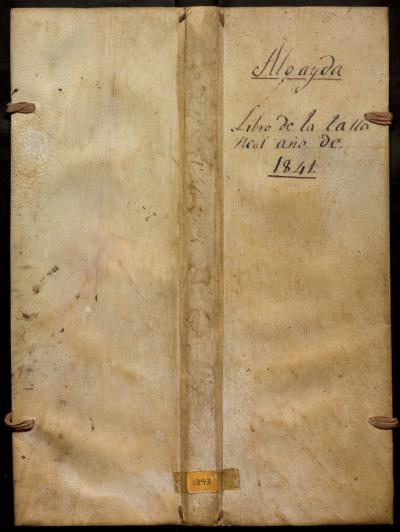 Algayda
Libro de la talla
Real año de
1841.
1393